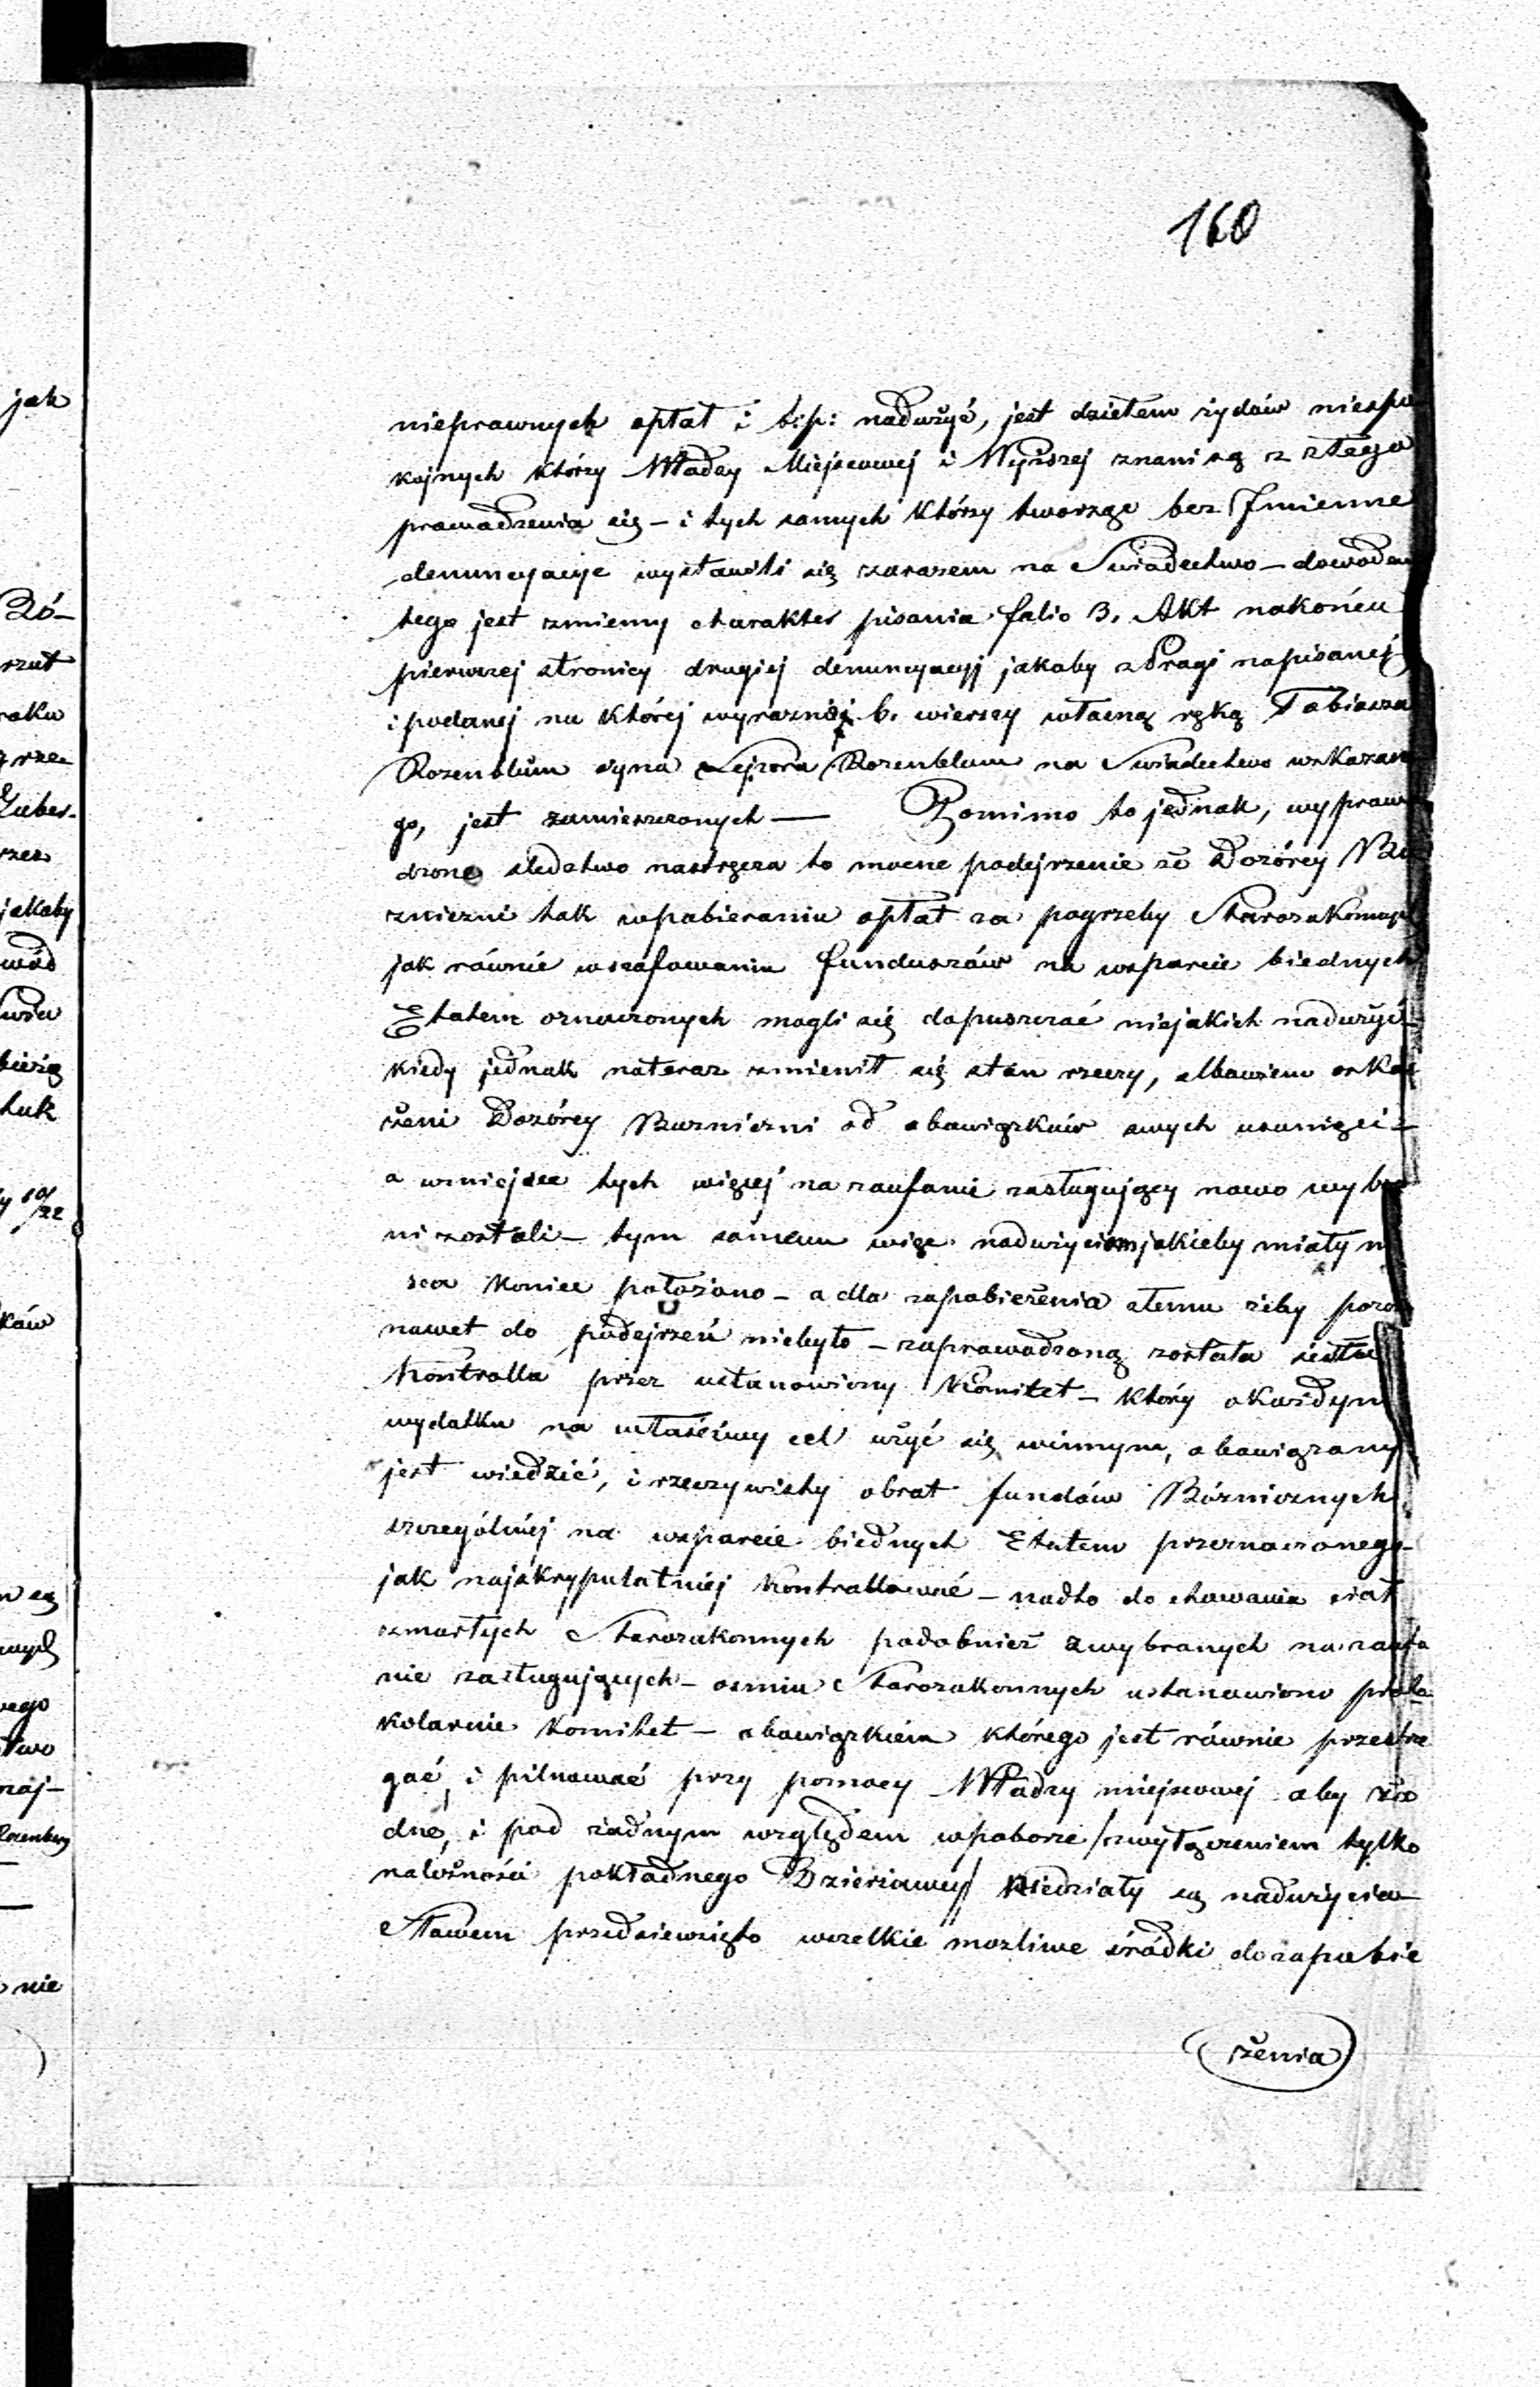 160
nieprawnych opłat i t:p: nadużyć, jest dziełem żydów niespo
kojnych którzy Władzy Miejscowej i Wyższej znani są z złego
prowadzenia się – i tych samych którzy tworząc bez Imienne
denuncyacye wystawili się zarazem na Swiadectwo – dowodem
tego jest zmienny charakter pisania folio 3. Akt nakońcu
pierwszej stronicy drugiej denuncyacyj jakoby z Pragi napisanej
i podanej na której wyraźniej 6. wierszy własną ręką Tobiasza
Rosenblum syna Lejzora Rozenblum na Swiadectwo wskazane
go, jest zamieszczonych — Pomimo to jednak, wyprowa
dzone sledztwo nastręcza to mocne podejrzenie że Dozórcy Bó
zniczni tak wpobieraniu opłat za pogrzeby Starozakonnych
jak równie wszafowaniu funduszów na wsparcie biednych
Etatem oznaczonych mogli się dopuszczać niejakich nadużyć –
kiedy jednak nateraz zmienił się stan rzeczy, albowiem oskar
żeni Dozórcy Bozniczni od obowiązków swych usunięci –
a wmiejsce tych więcej na zaufanie zasługujący nowo wybra
ni zostali – tym samem więc nadużyciom jakieby miały m
sca koniec położono – a dla zapobieżenia złemu żeby pozor
nawet do podejrzeń niebyło – zaprowadzoną została ścisła
Kontrolla przez ustanowiony Komitet – który okażdym
wydatku na właściwy cel użyć się winnym, obowiązany
jest wiedzić, i rzeczywisty obrot fundów Bóżnicznych
szczególniej na wsparcie biednych Etatem przeznaczonego
jak najskrypulatniej Kontrollować – nadto do chowania ciał
zmarłych Starozakonnych podobnież zwybranych na zaufa
nie zasługujących – osmiu Starozakonnych ustanowiono proto
kolarnie Komitet – obowiązkiem którego jest równie przestrze
gać i pilnować przy pomocy Władzy miejscowej aby ża
dne, i pod żadnym względem wpoborze /zwyłączeniem tylko
należności pokładnego Dzierżawcy/ niedziały się nadużycia –
Słowem przedsiewzięto wszelkie mozliwe śródki dozapobie
żenia
jak
Bó–
raku
jakoby
tuk
ków
nie